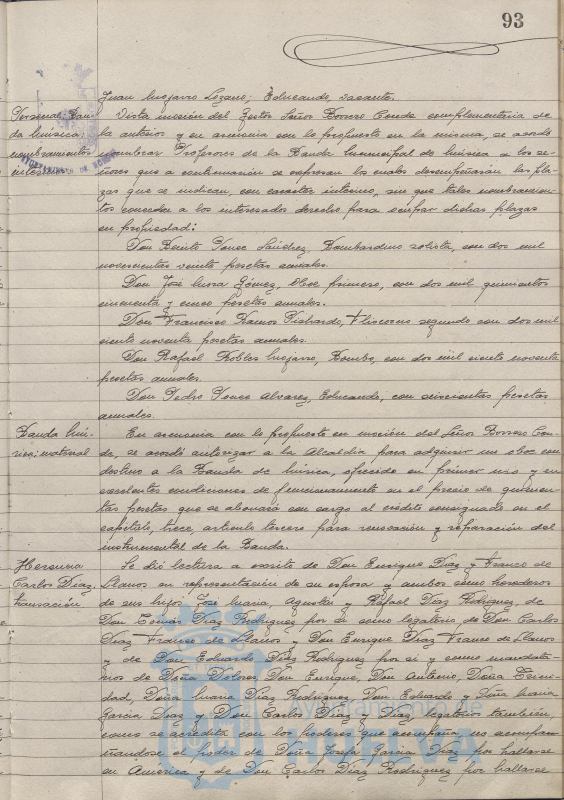 93
Juan Navarro Lozano; Educando, vacante.
Personal Ban-
da música;
nombramientos
Vista moción del Gestor Señor Borrero Conde complementaria de
la anterior y en armonía con lo propuesto en la misma, se acordó
nombrar Profesores de la Banda municipal de música a los se-
ñores que a continuación se expresan los cuales desempeñarán las pla-
zas que se indican, con carácter interino, sin que tales nombramien-
tos conceda a los interesados derecho para ocupar dichas plazas
en propiedad:
Don Benito Ponce Bombardino solista, con dos mil
novecientas veinte pesetas anuales.
Don José Mora Gómez, Oboe primero, con dos mil quinientos
cincuenta y cinco pesetas anuales.
Don Francisco Ramos Pichardo, Fliscorno segundo con dos mil
ciento noventa pesetas anuales.
Don Rafael Robles Navarro, Bombo, con dos mil ciento noventa
pesetas anuales.
Don Pedro Ponce Alvarez, Educando, con seiscientas pesetas
anuales.
Banda mú-
sica; material
En armonía con lo propuesto en moción del Señor Borrero Con-
de, se acordó autorizar a la Alcaldía para adquirir un oboe con
destino a la Banda de música, ofrecido en primer uso y en
excelentes condiciones de funcionamiento en el precio de quinien-
tas pesetas que se abonará con cargo al crédito consignado en el
capítulo, trece, artículo tercero para renovación y reparación del
instrumental de la Banda.
Carlos Díaz,
transacción
Se dió lectura a escrito de Don Enrique Díaz y Franco de
Llanos en representación de su esposa y ambos como herederos
de sus hijos José María, Agustín y Rafael Díaz Rodríguez, de
Don Tomás Díaz Rodríguez por sí como legatario de Don Carlos
Díaz Franco de Llanos y Don Enrique Díaz Franco de Llanos
y de Don Eduardo Díaz Rodríguez por sí y como mandata-
rios de Doña Dolores, Don Enrique, Don Antonio, Doña Trini-
dad, Doña María Díaz Rodríguez, Don Eduardo y Doña María
García Díaz y Don Carlos Díaz y Díaz legatarios también,
como se acredita con los poderes que acompaña, no acompa-
ñándose el poder de Doña Josefa García Díaz por hallarse
en América y de Don Carlos Díaz Rodríguez por hallarse
Ayuntamiento de
HUELVA